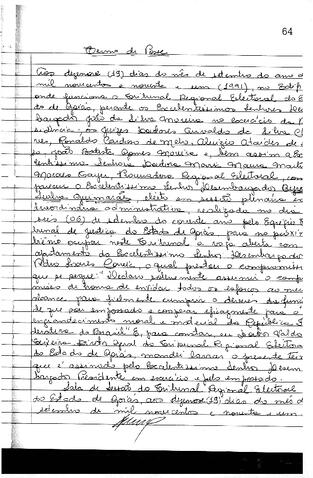 64
Termo de Posse
Aos dezenove (19) dias do mês de setembro do ano de
mil novecentos e noventa e um (1991), no Edifí
onde funciona o Tribunal Regional Eleitoral do Es
do de Goiás, perante os Excelentíssimos Senhores Desem
bargador da Silva Moreira no exercício da P
sidência, os Juízes Doutores da Silva
Ronaldo Cardoso de Melo, Aluízio Ataídes de
João Batista Gomes Moreira e bem assim a Ex
lentíssima Senhora Doutora Maria Maura Mart
Moraes Tayer, Procuradora Regional Eleitoral, com
pareceu o Excelentíssimo Senhor Desembargador
Guimarães, eleito em sessão plenária ex
traordinária administrativa, realizada no dia
(06) de setembro do corrente ano pelo Egrégio
bunal de Justiça do Estado de Goiás, para no próxim
ocupar neste Tribunal a vaga aberta com
aposentadoria do Excelentíssimo Senhor Desembargador
Soares o qual prestou o compromisso
que se segue: "Declaro solenemente assumir o comp
misso de honra de envidar todos os esforços ao meu
alcance, para fielmente cumprir os deveres da fun
de que sou empossado e cooperar eficazmente para o
engrandecimento moral e material da República F
derativa do Brasil". E, para constar, eu,
Teixeira, Diretor Geral do Tribunal Regional Eleitora
do Estado de Goiás, mandei lavrar o presente ter
que é assinado pelo Excelentíssimo Senhor Desem
bargador Presidente em exercício e pelo empossado.
Sala de Sessão do Tribunal Regional Eleitoral
do Estado de Goiás, aos dezenove (19) dias do mês d
setembro de mil novecentos e noventa e um